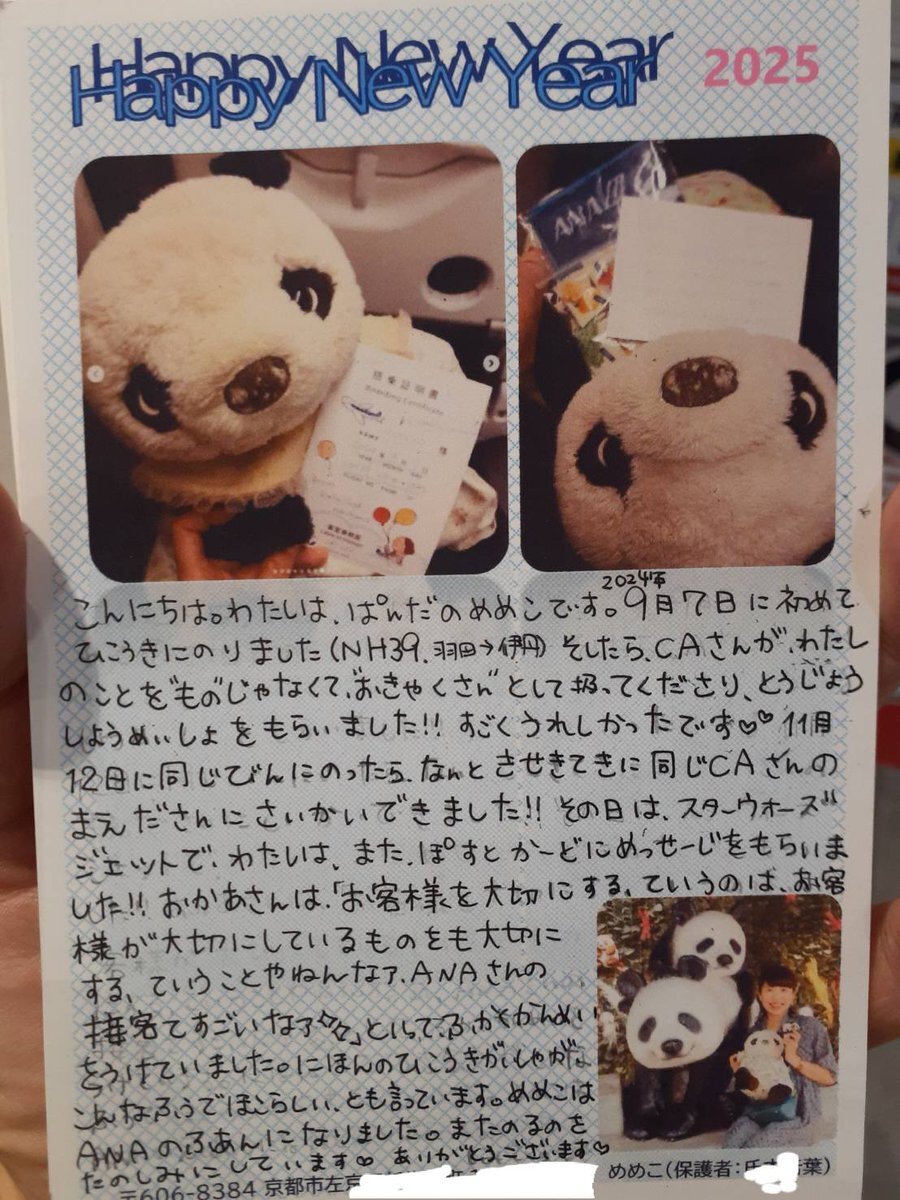 Happy New Year
2025
ANA
搭乗証明書
Boarding Certificate
2024年
こんにちは。わたしは、ぱんだのめめこです。9月7日に初めて
ひこうきにのりました(NH39、羽田→伊丹) そしたら、CAさんが、わたし
のことを"もの"じゃなくて、"おきゃくさん"として扱ってくださり、とうじょう
しょうめいしょをもらいました!! すごくうれしかったです♡♡ 11月
12日に同じびんにのったら、なんと させきてきに同じCAさんの
まえださんにさいかいできました!! その日は、スターウォーズ
ジェットで、わたしは、また、ぽすとかーどにめっせーじをもらいま
した!! おかあさんは、「お客様を大切にする、ていうのは、お客
様が大切にしているものをも大切に
する、ていうことやねんなァ、ANAさんの
接客てすごいなァ」といって、ふかくかんめい
をうけていました。にほんのひこうきがいしゃが
こんなふうでほこらしい、とも言っています。めめこは
ANAのふあんになりました。またのるのを
たのしみにしています♡ ありがとうございます♡
めめこ(保護者:
〒606-8384 京都市左京